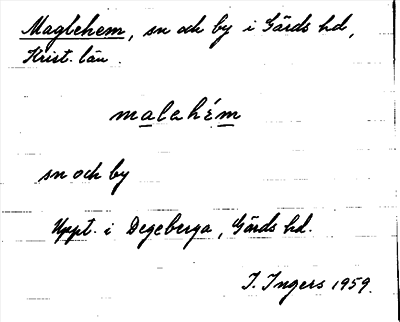 Maglehem, sn och by i Gärds hd,
Krist. län.
malahém
sn och by
Uppt. i Degeberga, Gärds hd.
I. Ingers 1959.